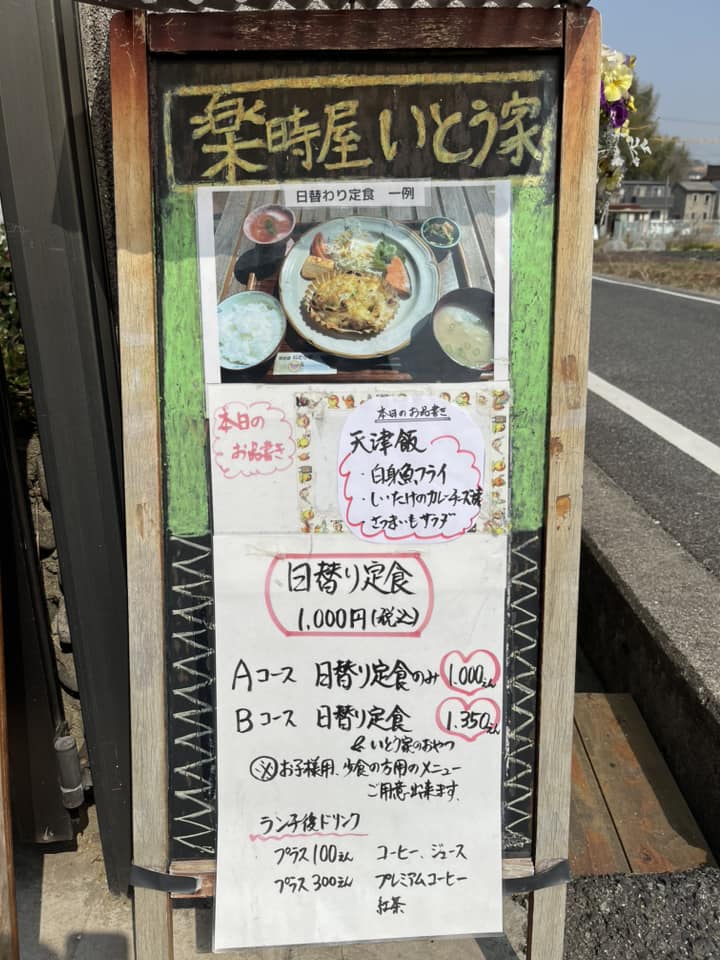 楽時屋 いとう家
日替わり定食 一例
本日の
お品書き
本日のお品書き
天津飯
・白身魚フライ
・しいたけのカレーチーズ焼
・さつまいもサラダ
日替り定食
1,000円(税込)
Aコース 日替り定食のみ 1.000えん
Bコース 日替り定食 1.350えん
& いとう家のおやつ
※お子様用、少食の方用のメニュー
ご用意出来ます。
ランチ後ドリンク
プラス100えん コーヒー、ジュース
プラス300えん プレミアムコーヒー
紅茶